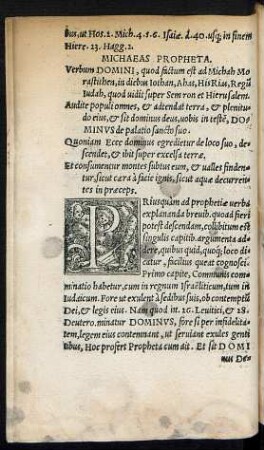 bus, ut Hos. 2. Mich. 4. 5. 6. Isaiæ. d. 40. usq; in finem
Hiere. 23. Hagg. 2.
MICHAEAS PROPHETA.
Verbum DOMINI, quod factum est ad Michah Mo
rastithen, in diebus Iothan, Ahas, HisKias, Regũ
Iudah, quod uidit super Semron et Hierusalem.
Audite populi omnes, & attendat terra, & plenitu
do eius, & sit dominus deus, uobis in testẽ, DO-
MINVS de palatio sancto suo.
Quoniam Ecce dominus egredietur de loco suo, de-
scendet, & ibit super excelsa terræ.
Et consumentur montes subtus eum, & ualles finden-
tur, sicut cæra à facie ignis, sicut aquæ decurren-
tes in præceps.
PRiusquàm ad prophetiæ uerba
explananda breuib. quoad fieri
potest descendam, collibitum est
singulis capitib. argumenta ad-
dere, quibus quid, quoq; loco di-
catur, facilius queat cognosci.
Primo capite, Communis com
minatio habetur, cum in regnum Israëliticum, tum in
Iudaicum. Fore ut exulent à sedibus suis, ob contemptũ
Dei, & legis eius. Nam quod in. 26. Leuitici, & 28.
Deutero. minatur DOMINVS, fore si per infidelita-
tem, legem eius contemnant, ut seruiant exules genti
bus, Hoc profert Propheta cum ait. Et sit DOMI
nus De-